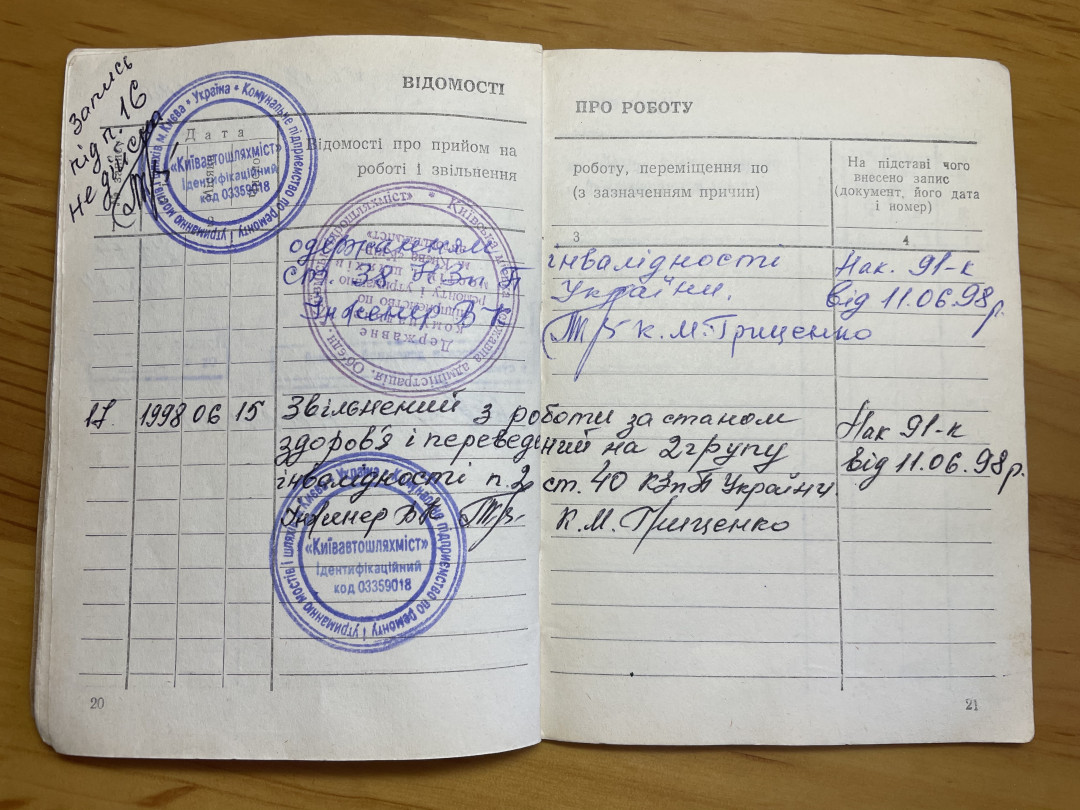 Запись
під п. 16
недійсна
ВІДОМОСТІ
ПРО РОБОТУ
Дата
Відомості про прийом на
роботі і звільнення
роботу, переміщення по
(з зазначенням причин)
На підставі чого
внесено запис
(документ, його дата
і номер)
3
4
Україна • Комунальне підприємство по ремонту і утриманню мостів і шляхів м. Києва
«Київавтошляхміст»
Ідентифікаційний
код 03359018
одержанням інвалідності Нак. 91-к
ст. 38 КЗпП України. від 11.06.98р.
Інженер ВК К.М.Гриценко
17. 1998 06 15 Звільнений з роботи за станом Нак 91-к
здоров'я і переведений на 2 групу від 11.06.98р.
інвалідності п.2 ст. 40 КЗпП України
Інженер ВК К.М. Гриценко
Україна • Комунальне підприємство по ремонту і утриманню мостів і шляхів м. Києва
«Київавтошляхміст»
Ідентифікаційний
код 03359018
20
21